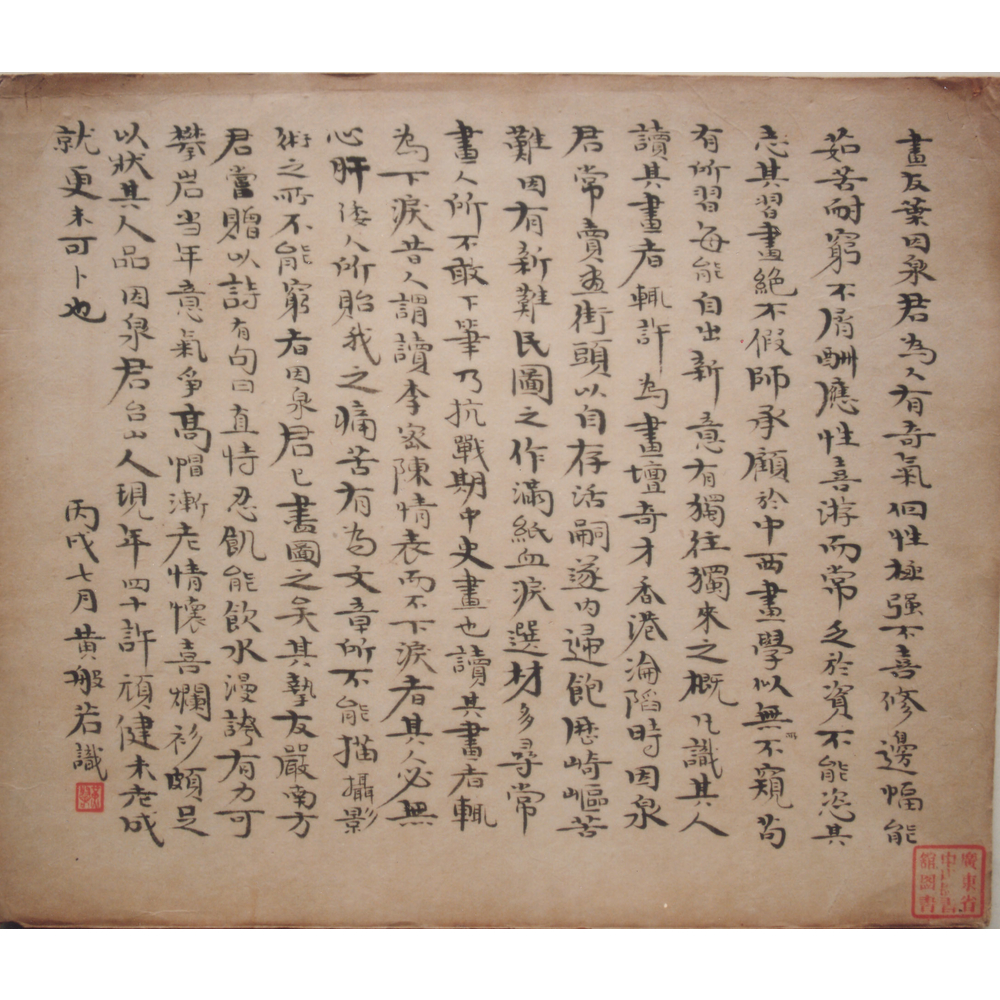 畫友葉因泉君為人有奇氣個性極强不喜修邊幅能
茹苦耐窮不屑酬應性喜游而常乏於資不能恣其
志其習畫絕不假師承顧於中西畫學似無所不窺苟
有所習每能自出新意有獨往獨來之概凡識其人
讀其畫者輒許為畫壇奇才香港淪陷時因泉
君常賣畫街頭以自存活嗣遂內歸飽歷崎嶇苦
難因有新難民圖之作滿紙血淚選材多尋常
畫人所不敢下筆乃抗戰期中史畫也讀其畫者輒
為下淚昔人謂讀李密陳情表而不下淚者其人必無
心肝倭人所貽我之痛苦有為文章所不能描攝影
術之所不能窮者因泉君已畫圖之矣其摯友嚴南方
君嘗贈以詩有句曰直恃忍飢能飲水漫誇有力可
攀岩当年意氣爭高帽漸老情懷喜爛衫頗足
以狀其人品因泉君台山人現年四十許頑健未老成
就更未可卜也
丙戌七月黃般若識
廣東省
中山圖書
館圖書